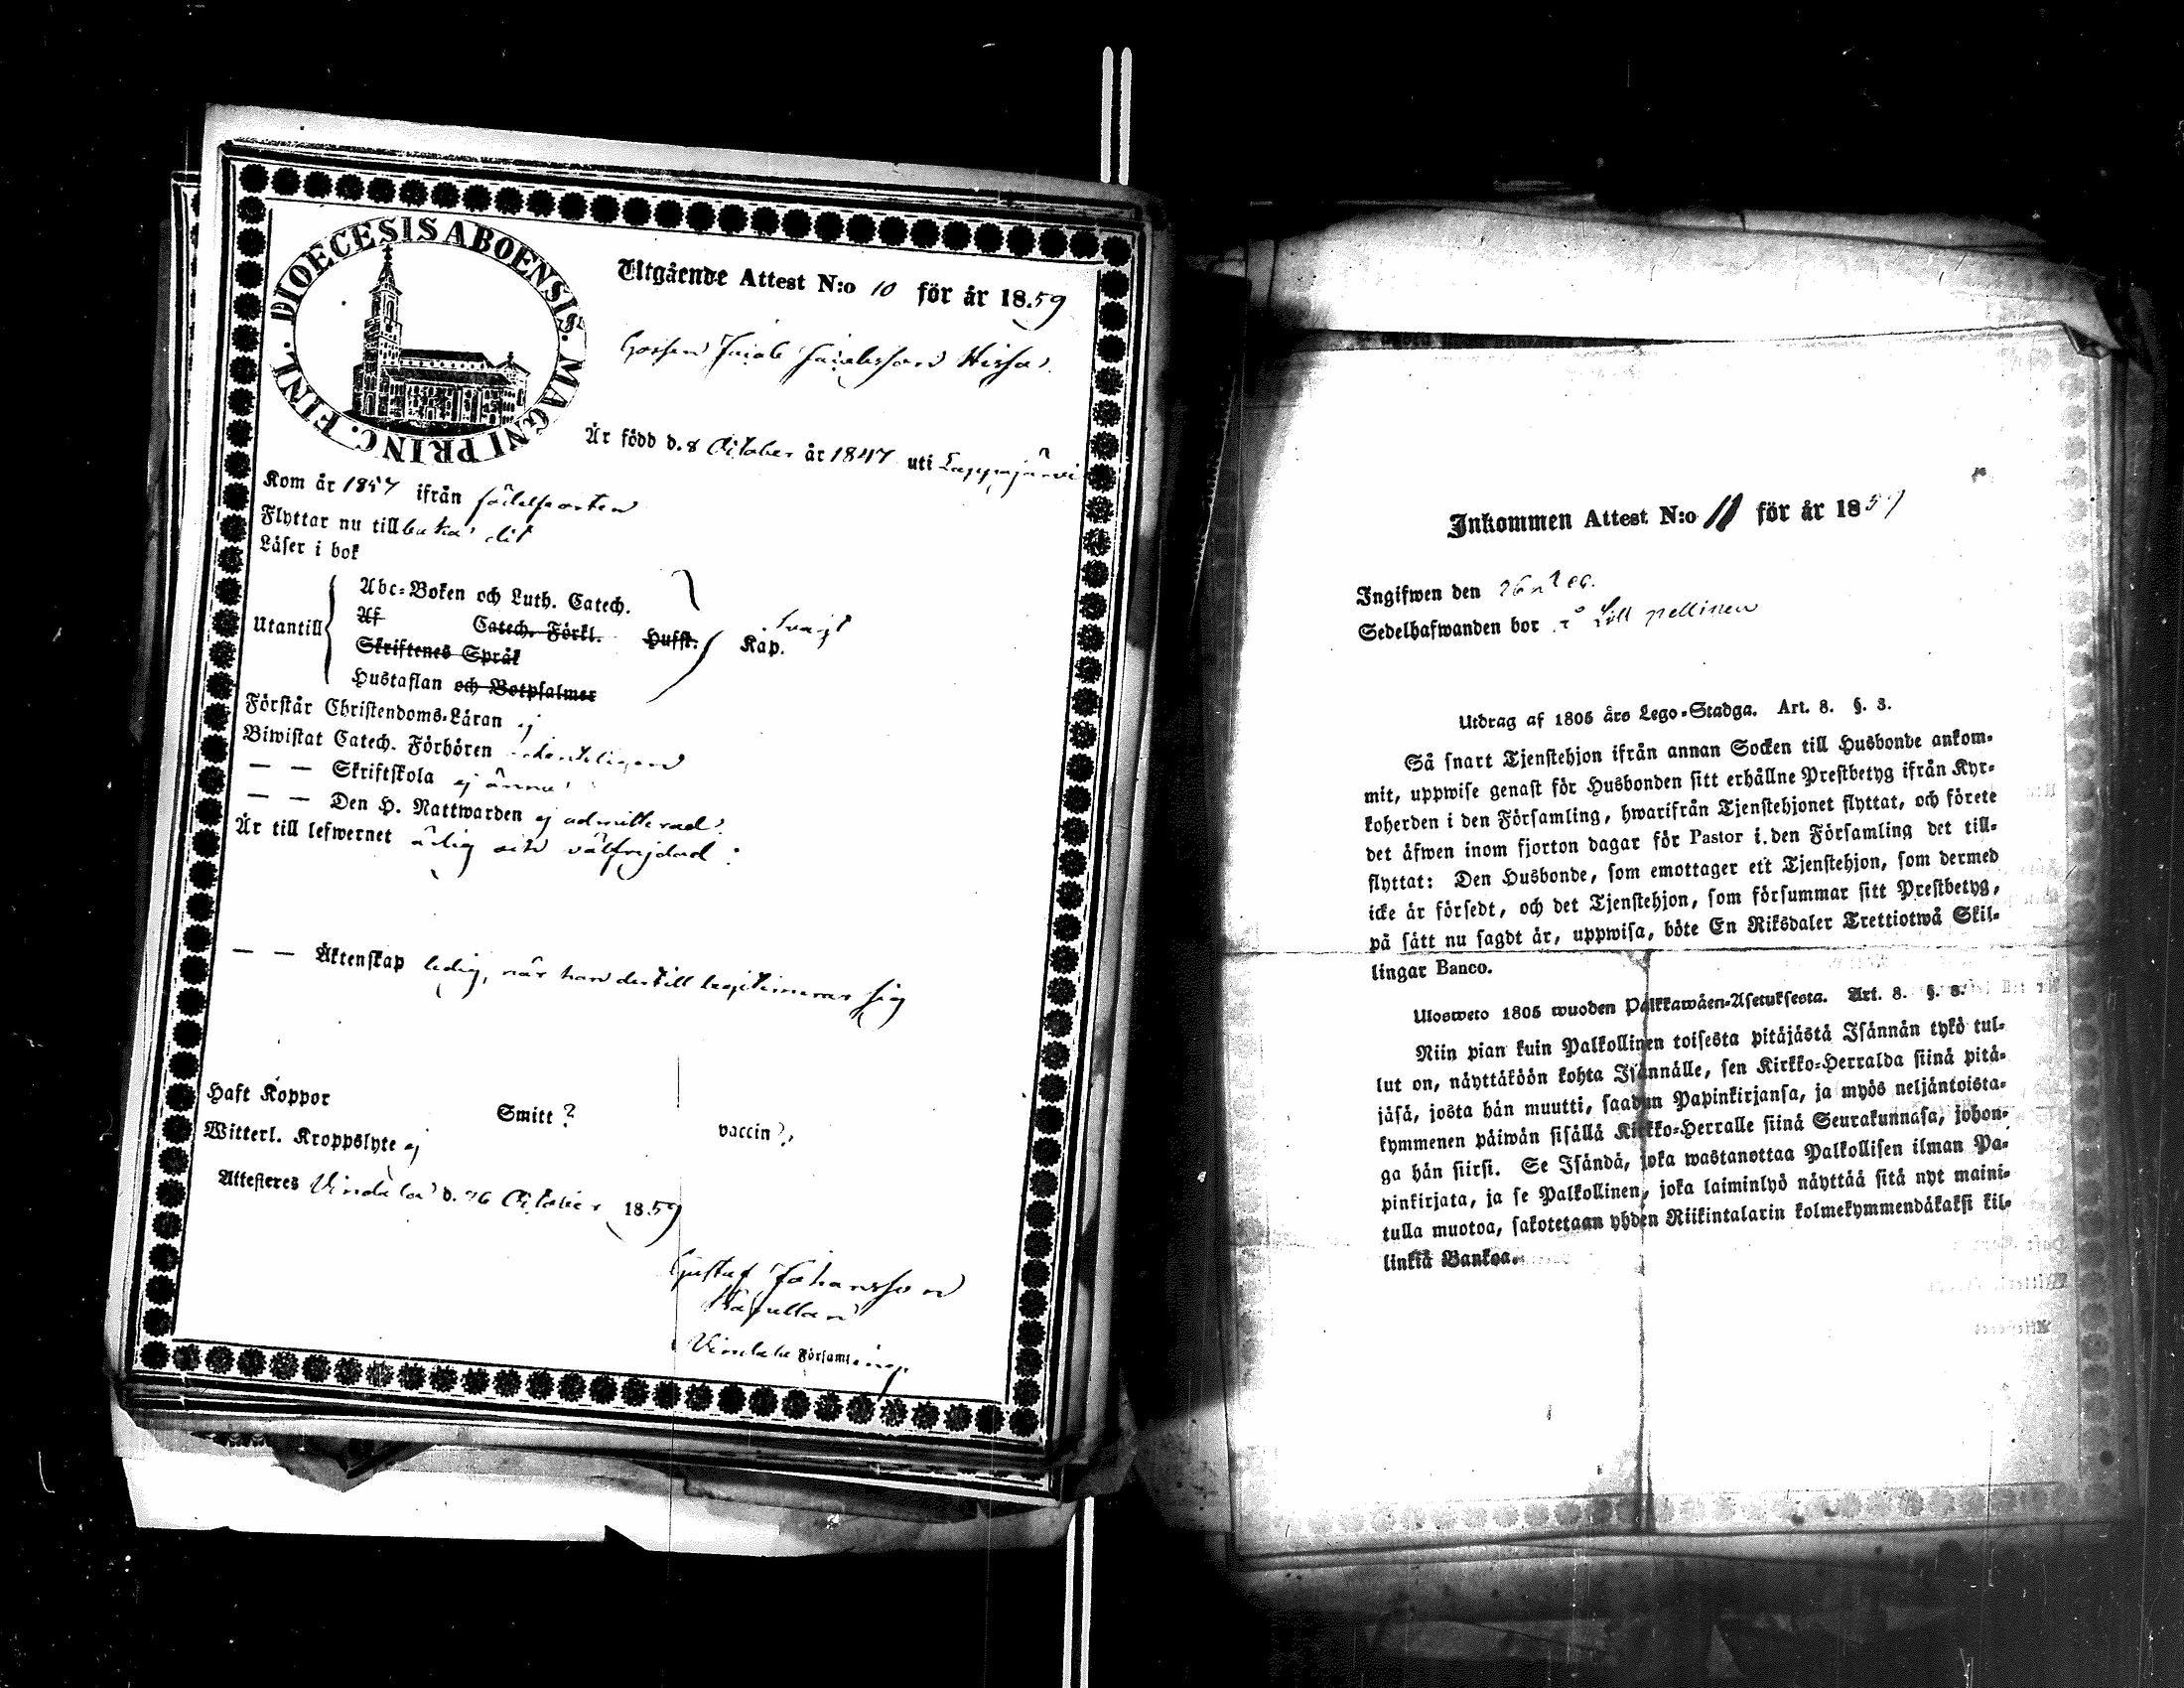 DIOECESIS ABOENSIS. MAGNI PRINC. FINL.
Utgående Attest N:o 10 för år 18.59
Gossen Jacob Jacobsson Hissa.
Är född d. 8 October år 1847 uti Lappajärvi
Kom år 1857 ifrån födelseorten
Flyttar nu tillbaka dit
Läser i bok
Utantill
Abc-Boken och Luth. Catech.
Af Catech. Förkl. Husst. Kap. svagt
Skriftenes Språk
Hustaflan och Botpsalmer
Förstår Christendoms-Läran ej
Biwistat Catech. Förhören ordenteligen
— — Skriftskola ej ännu
— — Den H. Nattwarden ej admitterad.
Är till lefwernet ärlig och välfrejdad
— — Äktenskap ledig, när han dertill legitimerar sig
Haft Koppor Smitt? vaccin?,
Witterl. Kroppslyte ej
Attesteras Vindala d. 26 October 18.59
Gustaf Johansson
Kapellan
Vindala Församling
Inkommen Attest N:o 11 för år 1859
Ingifwen den
Sedelhafwanden bor
Utdrag af 1805 års Lego-Stadga. Art. 8. §. 3.
Så snart Tjenstehjon ifrån annan Socken till Husbonde ankom-
mit, uppwise genast för Husbonden sitt erhållne Prestbetyg ifrån Kyr-
koherden i den Församling, hwarifrån Tjenstehjonet flyttat, och förete
det äfwen inom fjorton dagar för Pastor i den Församling det till-
flyttat: Den Husbonde, som emottager ett Tjenstehjon, som dermed
icke är försedt, och det Tjenstehjon, som försummar sitt Prestbetyg,
på sätt nu sagdt är, uppwisa, böte En Riksdaler Trettiotwå Skil-
lingar Banco.
Ulosweto 1805 wuoden Palkkawäen-Asetuksesta. Art. 8. §. 3.
Niin pian kuin Palkollinen toisesta pitäjästä Isännän tykö tul-
lut on, näyttäköön kohta Isännälle, sen Kirkko-Herralda siinä pitä-
jäsä, josta hän muutti, saadun Papinkirjansa, ja myös neljäntoista-
kymmenen päiwän sisällä Kirkko-Herralle siinä Seurakunnasa, johon-
ga hän siirsi. Se Isändä, joka wastanottaa Palkollisen ilman Pa-
pinkirjata, ja se Palkollinen, joka laiminlyö näyttää sitä nyt maini-
tulla muotoa, sakotetaan yhden Riikintalarin kolmekymmendäkaksi kil-
linkiä Bankoa.